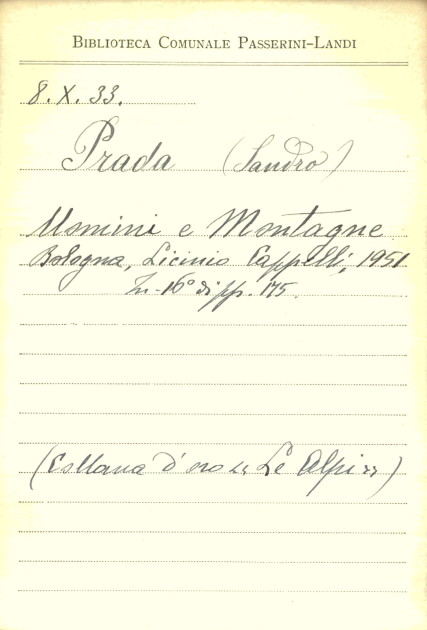 BIBLIOTECA COMUNALE PASSERINI-LANDI
8. X. 33.
Prada (Sandro)
Uomini e Montagne
Bologna, Licinio Cappelli, 1951
In-16° di pp. 175.
(Collana d'oro «Le Alpi»)